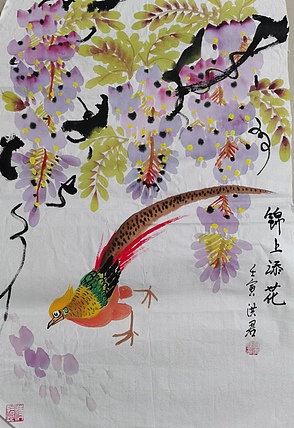 錦上添花
壬寅洪君